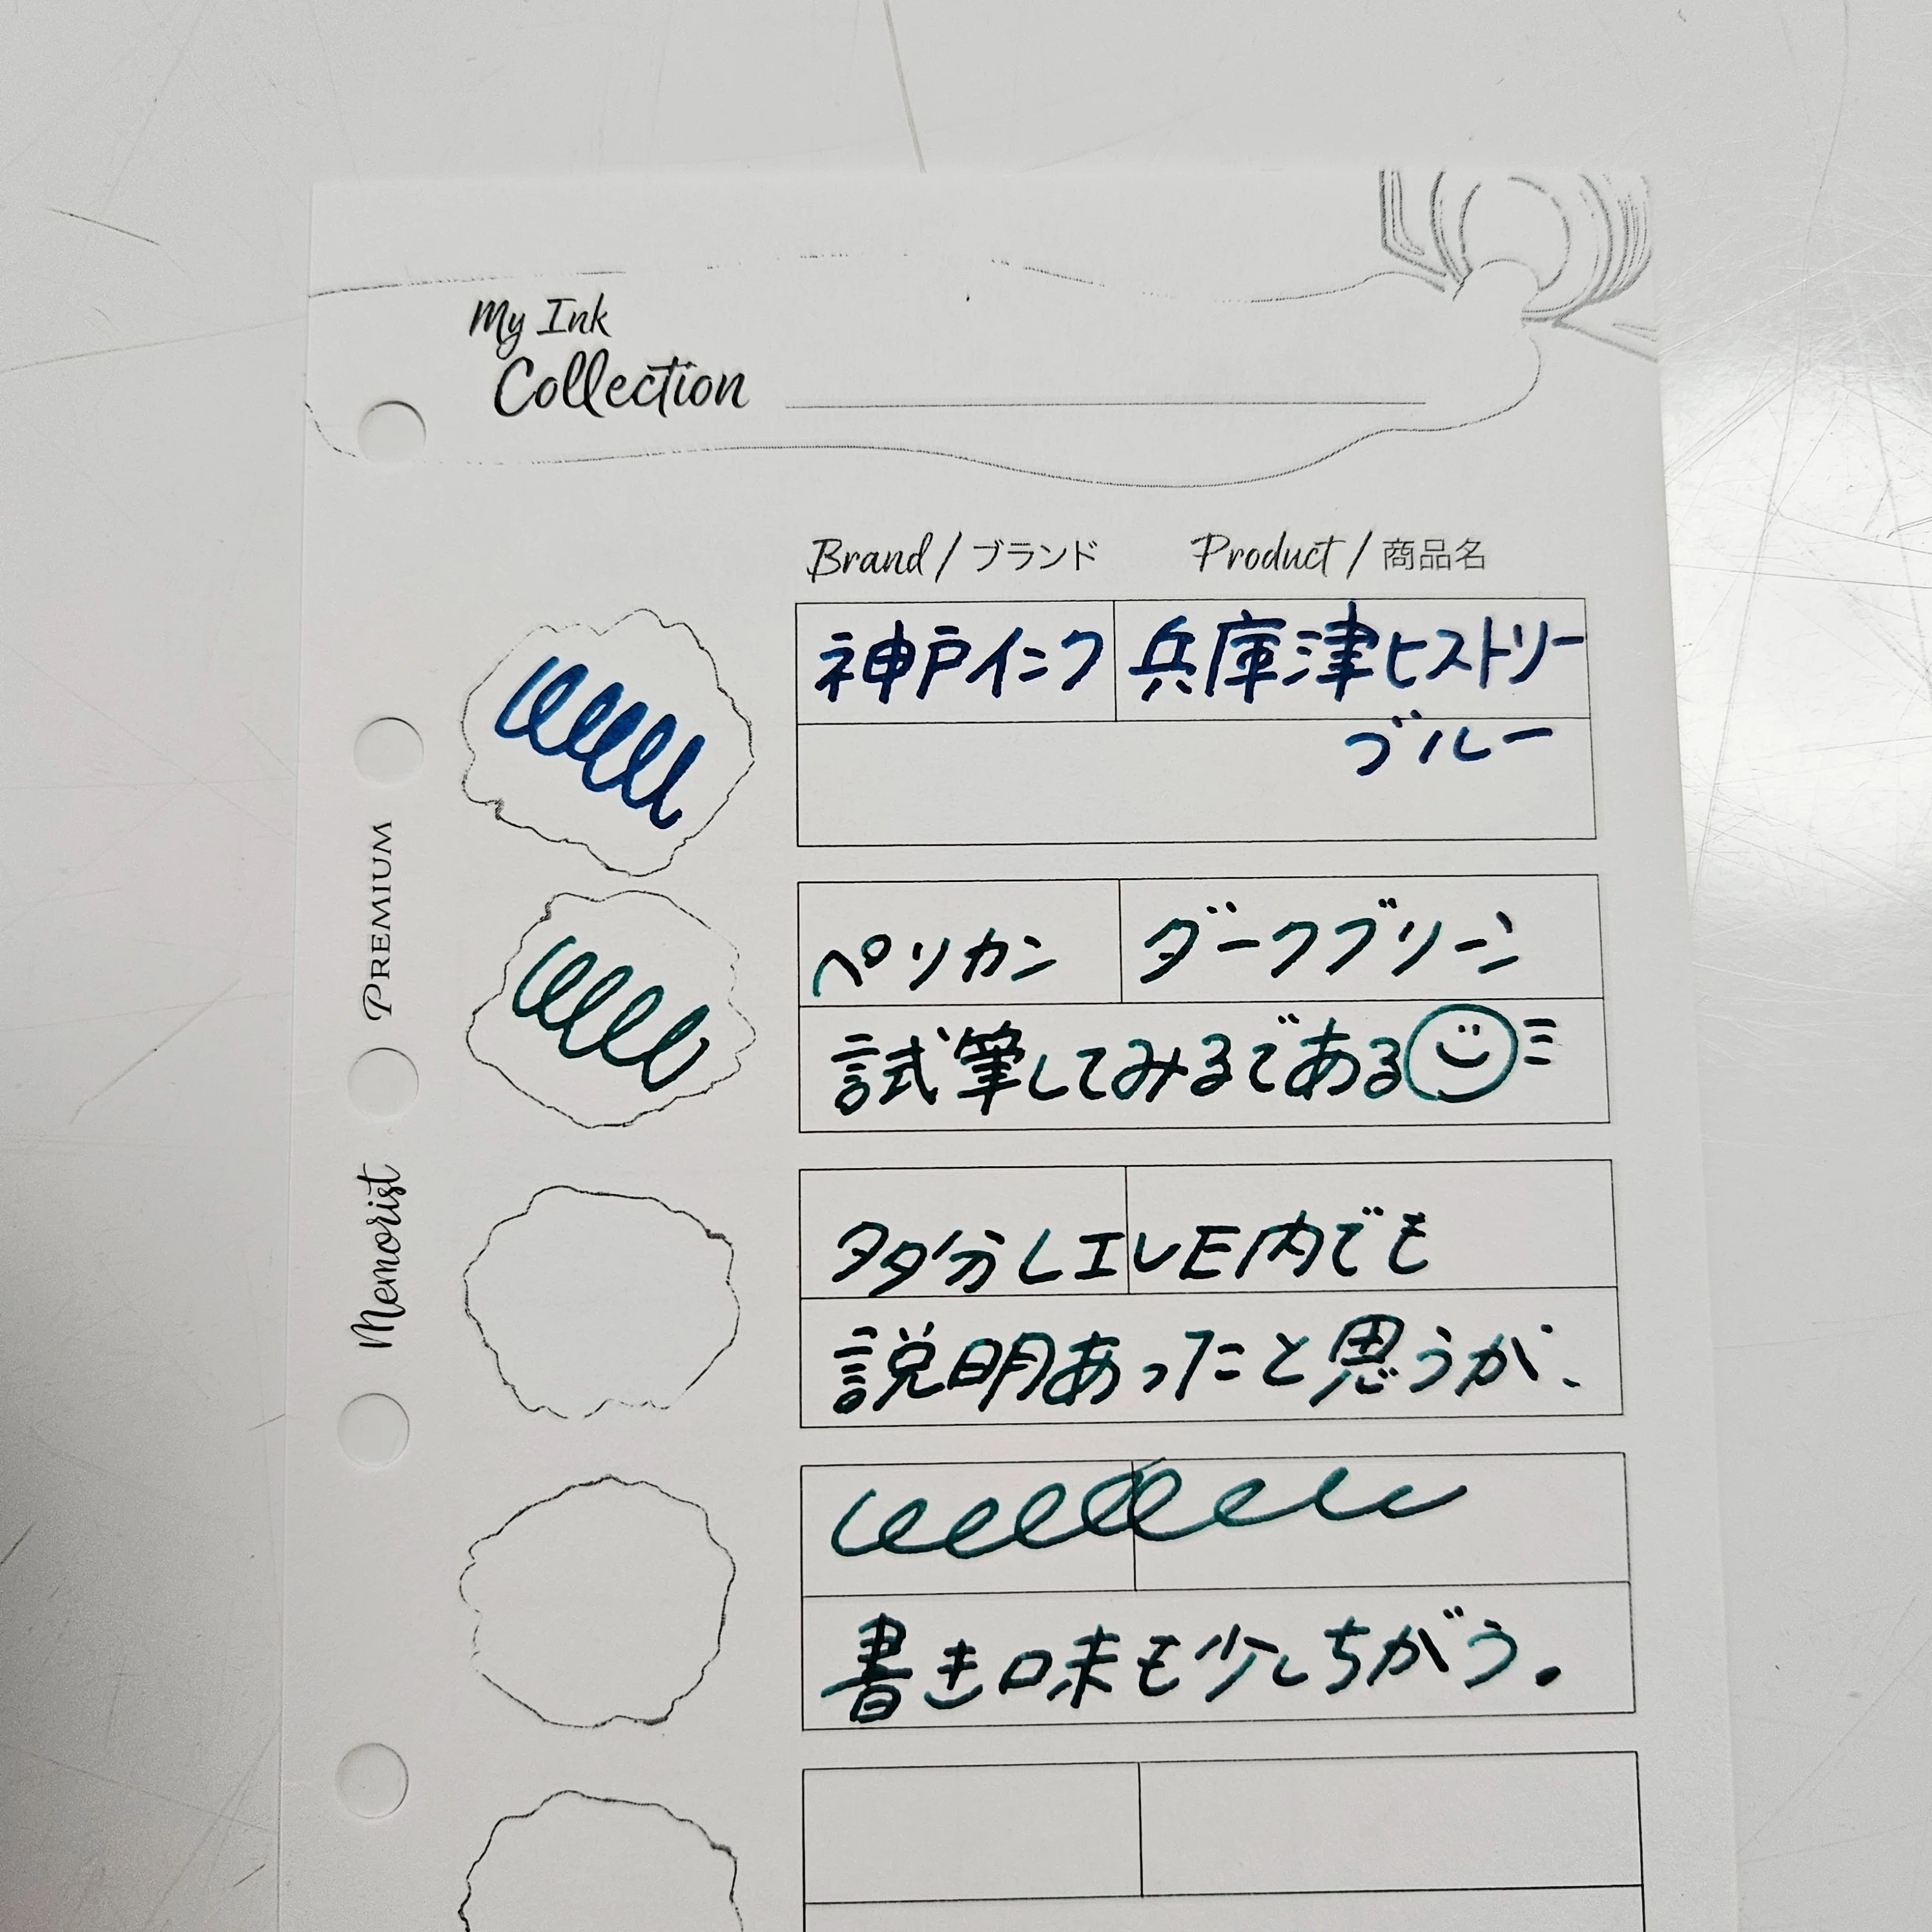 My Ink
Collection
Brand / ブランド
Product / 商品名
神戸インク
兵庫津ヒストリー
ブルー
ペリカン
ダークグリーン
試筆してみるである
多分LIVE内でも
説明あったと思うが、
書き味も少しちがう。
PREMIUM
Memorist